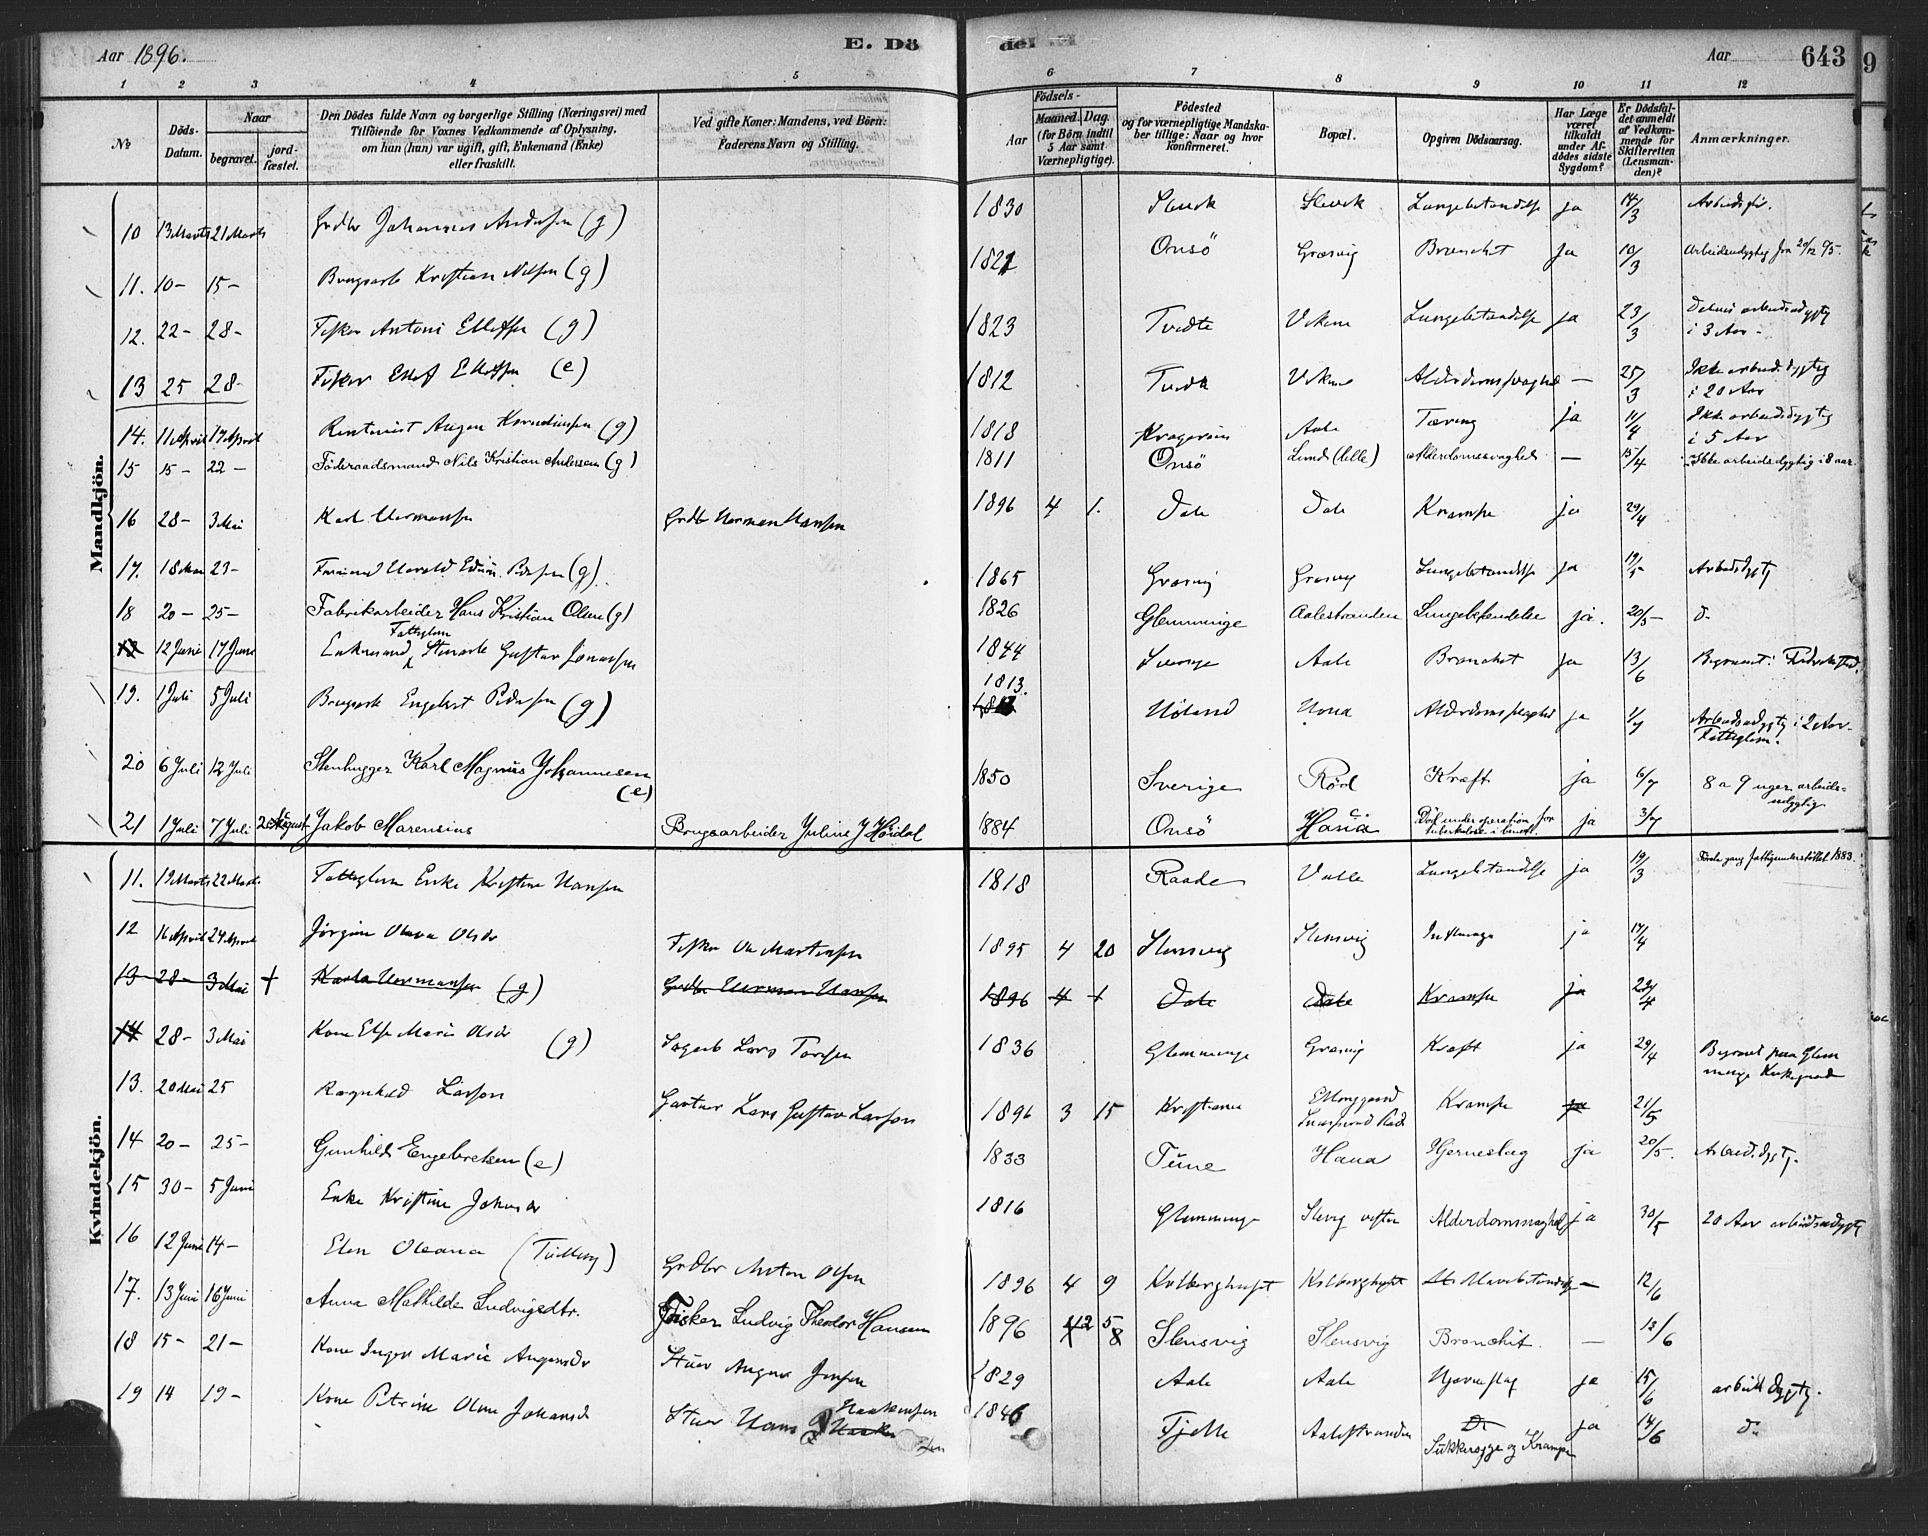 Aar 1896.
E. Dö
del
Aar
643
9
1 2 3 4 5 6 7 8 9 10 11 12
№
Döds-Datum.
Naar
begravet.
jord-fæstet.
Den Dödes fulde Navn og borgerlige Stilling (Næringsvei) med
Tilföiende for Voxnes Vedkommende af Oplysning,
om han (hun) var ugift, gift, Enkemand (Enke)
eller fraskilt.
Ved gifte Koner: Mandens, ved Börn:
Faderens Navn og Stilling.
Födsels-
Aar
Maaned. Dag.
(for Börn indtil
5 Aar samt
Værnepligtige).
Födested
og for værnepligtige Mandska-
ber tillige: Naar og hvor
konfirmeret.
Bopæl.
Opgiven Dödsaarsag.
Har Læge
været
tilkaldt
under Af-
dödes sidste
Sygdom?
Er Dödsfal-
det anmeldt
af Vedkom-
mende for
Skifteretten
(Lensman-
den)?
Anmærkninger.
Mandkjön.
10 13 Marts 21 Marts Grdbr Johannes Andersen (g) 1830 Slevik Slevik Lungebetændelse ja 14/3 Arbeidsför.
11. 10- 15- Brugsarb Kristian Nilsen (g) 1821 Onsö Græsvig Bronchit Ja 10/3 Arbeidsudygtig fra 20/12 95.
12. 22- 28- Fisker Antoni Ellefsen (g) 1823 Tvedte Vikene Lungebetændelse ja 23/3 Delvis arbeidsudygtig
i 3 Aar -
13 25 28- Fisker Ellef Ellefsen (e) 1812 Vikene Alderdomssvaghed — 25/3 Ikke arbeidsdygtig
i 20 Aar
14. 11 April 17 April Rentenist (g) 1818 Kragerøen Aale Tæring ja 11/4 Ikke arbeidsdygtig
i 5 Aar
15 15- 22- Föderaadsmand Nils Kristian Andersen (g) 1811 Onsö Lund (lille) Alderdomssvaghed — 15/4 Ikke arbeidsdygtig i 8 aar.
16 28- 3 Mai Karl Hermansen Grdbr Herman Hansen 1896 4 1. Dale Dale Krampe ja 29/4
17. 18 Mai 23- Harald Edvin Pedersen (g). 1865 Græsvig Græsvig Lungebetændelse ja 19/5 Arbeidsdygtig
18 20- 25- Fabrikarbeider Hans Kristian Olsen (g) 1826 Glemminge Aalestranden Lungebetændelse ja. 20/5 d-
12 Juni 17 Juni Enkemand Fattiglem Gustav Jonassen 1844 Sverige Aale Bronchit ja 13/6 Begravet i Fredrikstad.
19. 1 Juli 5 Juli Brugsarb Engebret Pedersen (g) 1813. Höland Alderdomssvaghed ja 1/7 Arbeidsudygtig i 2 Aar.
Fattiglem.
20 6 Juli 12 Juli Stenhugger Karl Magnus Johannesen
(e) 1850 Sverige Röd Kræft ja 6/7 8 a 9 uger arbeids-
udygtig
21 1 Juli 7 Juli 2 August Jakob Marensius Brugsarbeider Julius J Höidal 1884 Onsö Hauä Död under operation for
tuberkulose i benet. ja 3/7
Kvindekjön.
11. 19 Marts 22 Marts Fattiglem Enke Kristine Hansen 1818 Raade Valle Lungebetændelse ja 19/3 Første gang fattigunderstöttet 1883.
12 16 April 24 April Jörgine Olava Olsdr Fisker Ole Martinsen 1895 4 20 Slensvig Slensvig Influenza ja 17/4
13 28- 3 Mai + Karla Hermansen (g) Grdbr Herman Hansen 1896 4 1 Dale Dale Krampe ja 29/4
14 28- 3 Mai Kone Else Marie Olsdr (g) Sagarb Lars Torsen 1836 Glemminge Græsvig Kræft ja 29/4 Begravet paa Glem
minge Kirkegaard
13. 20 Mai 25 Ragnhild Larson Gartner Lars Gustav Larson 1896 3 15 Kristiania Krampe ja 21/5
14 20- 25- Gunhild Engebretsen (e) 1833 Tune Haua Hjerneslag ja 20/5. Arbeidsdygtig.
15 30- 5 Juni Enke Kristine Johnsdr 1816 Glemminge Slevig Alderdomssvaghed ja 30/5 20 Aar arbeidsudygtig
16 12 Juni 14- Elen Oleana (Tvilling) Grdbr Anton Olsen 1896 4 9 Kilberghuset Kilberghuset — 12/6
17. 13 Juni 16 Juni Anna Mathilde Ludvigsdtr. Fisker Ludvig Theodor Hansen 1896 2 5 Slensvig Slensvig Bronchit. — 13/6
18 15- 21- Kone Inger Marie Stuer August Jensen 1829 Aale Aale Hjerneslag ja 15/6 arbeidsdygtig.
19 14 19- Kone Petrine Oline Johansdr Stuer Hans Haakensen 1846 Fjelle Aalestranden ja 14/6 do
Sukkersyge og Krampe